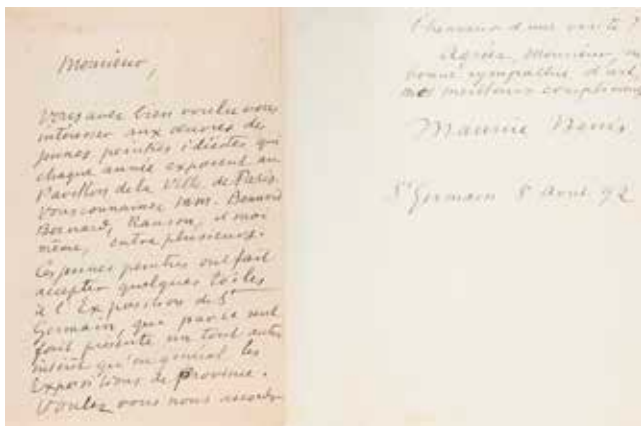 Monsieur,
Vous avez bien voulu vous
intéresser aux œuvres des
jeunes peintres idéistes qui
chaque année exposent au
Pavillon de la Ville de Paris.
Vous connaissez MM. Bonnard
Bernard, Ranson, et moi
même, entre plusieurs.
Ces jeunes peintres ont fait
accepter quelques toiles
à l'Exposition de St
Germain, qui par ce seul
fait présente un tout autre
intérêt qu'en général les
Expositions de Province.
Voulez vous nous accorder
l'honneur d'une visite ?
Agréez, Monsieur, ma
bonne sympathie d'art
mes meilleurs compliments
Maurice Denis
St Germain 8 Avril 92